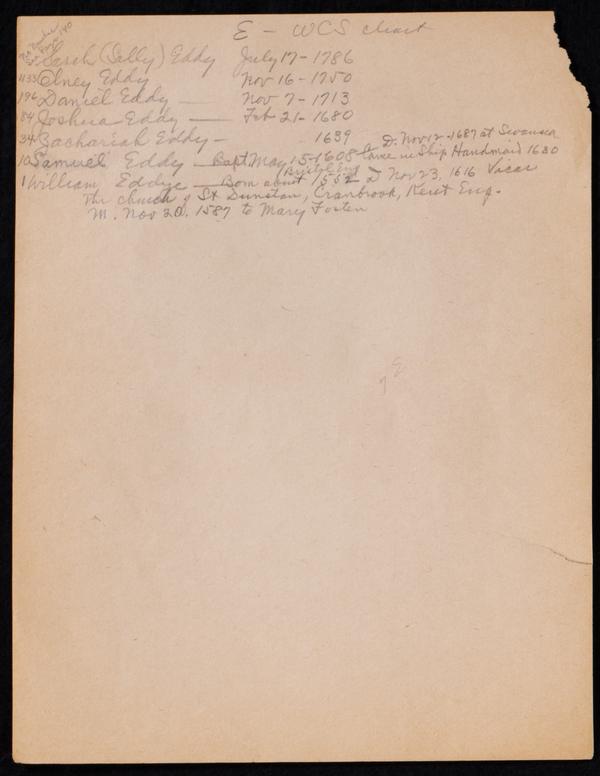 E - WCS chart
Sarah (Sally) Eddy July 17 - 1786
1133 Olney Eddy Nov 16 - 1750
196 Daniel Eddy — Nov 7 - 1713
84 Joshua Eddy — Feb 21 - 1680
34 Zachariah Eddy - 1639 D. Nov 12 - 1687 at Swansea
10 Samuel Eddy - Bapt May 15 - 1608 Came in Ship Handmaid 1630
1 William Eddye — Born about 1552 Bristol Eng D Nov 23, 1616 Vicar
the church of St Dunstan, Cranbrook, Kent Eng.
M. Nov 20. 1587 to Mary Fosten
E